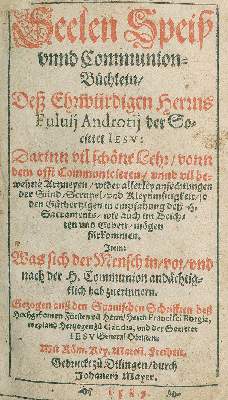 Seelen Speiß
vnnd Communion-
Büchlein/
Deß Ehrwürdigen Herrns
Fuluij Androtij der So-
cietet IESV:
Darinn vil schöne Lehr/ vonn
dem offt Communicieren/ vnnd vil be-
wehrte Artzneyen/ wider allerley anfechtungen
der Sünd/ Scrupel/ vnd Kleynmütigkeit/ so
den Gutherzigen in empfahung deß H.
Sacraments/ wie auch im Beich-
ten vnd Gebett/ mögen
fürkommen.
Item:
Was sich der Mensch in/ vor/ vnd
nach der H. Communion andächtig-
klich hab zu erinnern.
Gezogen auß den Spanischen Schrifften deß
Hochgebornen Fürsten vñ Herrn/ Herrn Francisci Borgiæ,
weyland Hertzogen zů Gandia, vnd der Societet
IESV General Obristens.
Mit Röm. Key. Maiest. Freiheit.
Gedruckt zů Dilingen/ durch
Johannem Mayer.